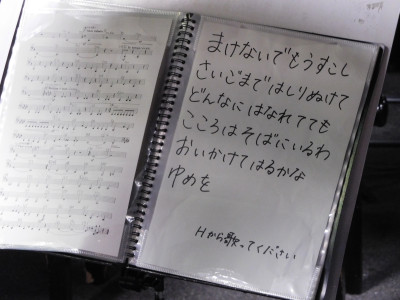 まけないでもうすこし
さいごまではしりぬけて
どんなにはなれてても
こころはそばにいるわ
おいかけてはるかな
ゆめを
Hから歌ってください